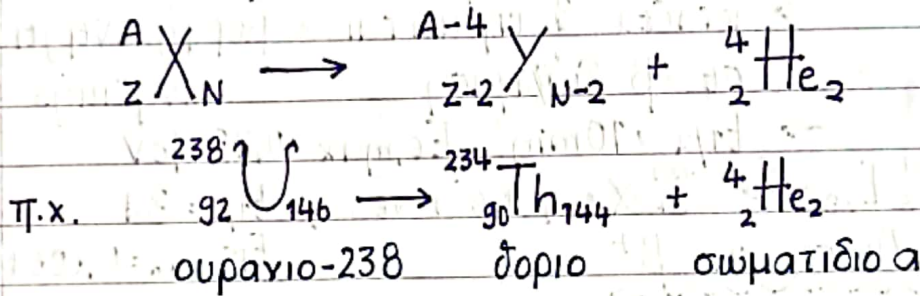 ᴬ_Z X_N → ᴬ⁻⁴_Z-2 Y_N-2 + ⁴₂He₂
π.χ. ²³⁸₉₂U₁₄₆ → ²³⁴₉₀Th₁₄₄ + ⁴₂He₂
ουρανιο-238 θοριο σωματιδιο α